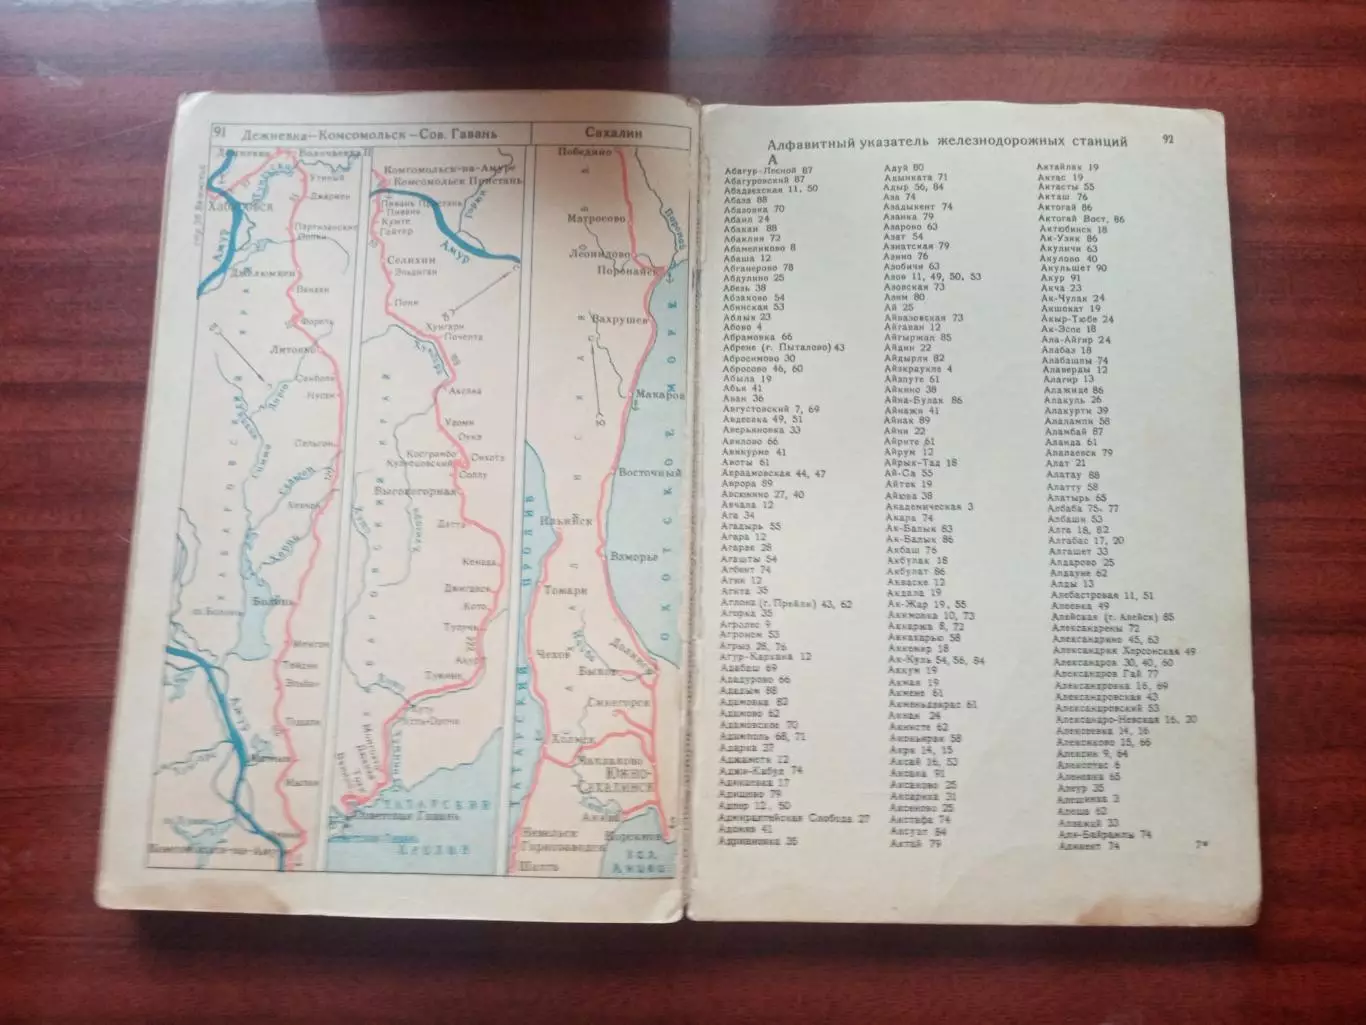 91 Дежневка—Комсомольск—Сов. Гавань
Сахалин
Волочаевка II
Хабаровск
Утиный
Джармен
Партизанские
Сопки
Амур
Джелюмкен
Форель
Литовко
Сельгон
Болонь
Менген
Тейсин
Эльбан
Мылки
Комсомольск-на-Амуре
Комсомольск Пристань
Пивань Пристань
Пивань
Кумте
Гайтер
Селихин
Эльдиган
Амур
Пони
Хунгари
Почепта
Аксака
Удоми
Оунэ
Косграмбо
Кузнецовский
Сихотэ
Соллу
Высокогорная
Датта
Кенада
Джигдаси
Кото
Тулучи
Акур
Тумнин
Усть-Орочи
Советская Гавань
ТАТАРСКИЙ
ПРОЛИВ
Победино
Матросово
Леонидово
Поронайск
Вахрушев
Макаров
Восточный
Ильинск
Взморье
Томари
Чехов
Долинск
Быков
Синегорск
Холмск
ЮЖНО-
САХАЛИНСК
Невельск
Горнозаводск
Шахта
Корсаков
ОХОТСКОЕ МОРЕ
ТАТАРСКИЙ ПРОЛИВ
Алфавитный указатель железнодорожных станций 92
А
Абагур-Лесной 87
Абагуровский 87
Абадзехская 11, 50
Абаза 88
Абазовка 70
Абаил 24
Абакан 88
Абаклия 72
Абамеликово 8
Абаша 12
Абганерово 78
Абдулино 25
Абезь 38
Абзаково 54
Абинская 53
Аблык 23
Абово 4
Абрамовка 66
Абрене (г. Пыталово) 43
Абросимово 30
Абросово 46, 60
Абыла 19
Абья 41
Аван 36
Августовский 7, 69
Авдеевка 49, 51
Аверьяновка 33
Авилово 66
Авинурме 41
Авоты 61
Авраамовская 44, 47
Аврора 89
Авсюнино 27, 40
Авчала 12
Ага 34
Агадырь 55
Агара 12
Агарак 28
Агашты 54
Агбент 74
Агии 12
Агита 35
Аглона (г. Прейли) 43, 62
Агорка 35
Агролес 9
Агроном 53
Агрыз 25, 76
Агур-Каркана 12
Адабаш 69
Ададурово 66
Ададым 88
Адамовка 82
Адамово 62
Адамовское 70
Адамполь 68, 71
Адарка 37
Аджаметы 12
Аджи-Кабул 74
Адищево 79
Адлер 12, 50
Аджирштейская Слобода 27
Адонив 41
Адриановка 35
Адуй 80
Адынката 71
Адыр 56, 84
Аза 74
Азадыкент 74
Азанка 79
Азарово 63
Азат 54
Азиатская 79
Азино 76
Азобичи 63
Азов 11, 49, 50, 53
Азовская 73
Азям 80
Ай 25
Айвазовская 73
Айгаван 12
Айгыржал 85
Айдин 22
Айдырля 82
Айзкраукле 4
Айзпуте 61
Айкино 38
Айна-Булак 86
Айнажи 41
Айнак 89
Айни 22
Айрите 61
Айрум 12
Айрык-Тад 18
Ай-Са 55
Айтек 19
Айюва 38
Академическая 3
Акара 74
Ак-Балык 83
Ак-Балык 86
Акбаш 76
Акбулак 18
Акбулат 86
Акваске 12
Акдала 19
Ак-Жар 19, 55
Акимовка 10, 73
Аккаржа 8, 72
Аккахарью 58
Аккемир 18
Ак-Куль 54, 56, 84
Аккум 19
Акжал 19
Акмене 61
Акменьдзирас 61
Аккан 24
Акнисте 62
Аксай 16, 53
Аксака 91
Аксаково 25
Аксариха 31
Аксеново 25
Акстафа 74
Аксуат 84
Актай 79
Актайлак 19
Актас 19
Актасты 55
Акташ 76
Актогай 86
Актогай Вост. 86
Актюбинск 18
Ак-Узяк 86
Акуличи 63
Акулово 40
Акульшет 90
Акур 91
Акча 23
Ак-Чулак 24
Акшокат 19
Акыр-Тюбе 24
Ак-Эспе 18
Ала-Айгир 24
Алабаз 18
Алабашлы 74
Алаверды 12
Алагир 13
Алажиде 86
Алакуль 26
Алакуртти 39
Алалампи 58
Аламбай 87
Аланда 61
Алапаевск 79
Алат 21
Алатау 88
Алатту 58
Алатырь 65
Албаба 75- 77
Албаши 53
Алга 18, 82
Алгабас 17, 20
Алгашет 33
Алдарово 25
Алдауне 62
Алды 13
Алебастровая 11, 51
Алеевка 49
Алейская (г. Алейск) 85
Александрены 72
Александрино 45, 63
Александрия Херсонская 49
Александров 30, 40, 60
Александров Гай 77
Александровка 16, 69
Александровская 43
Александровский 53
Александро-Невская 16, 20
Алексеевка 14, 16
Алексиково 15, 66
Алексин 9, 64
Алексотас 6
Аленевка 65
Алеур 35
Алешинка 3
Алеша 62
Алзамай 33
Али-Байрамлы 74
7*